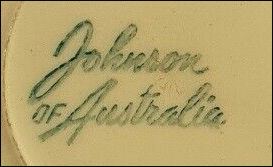 Johnson
OF Australia.